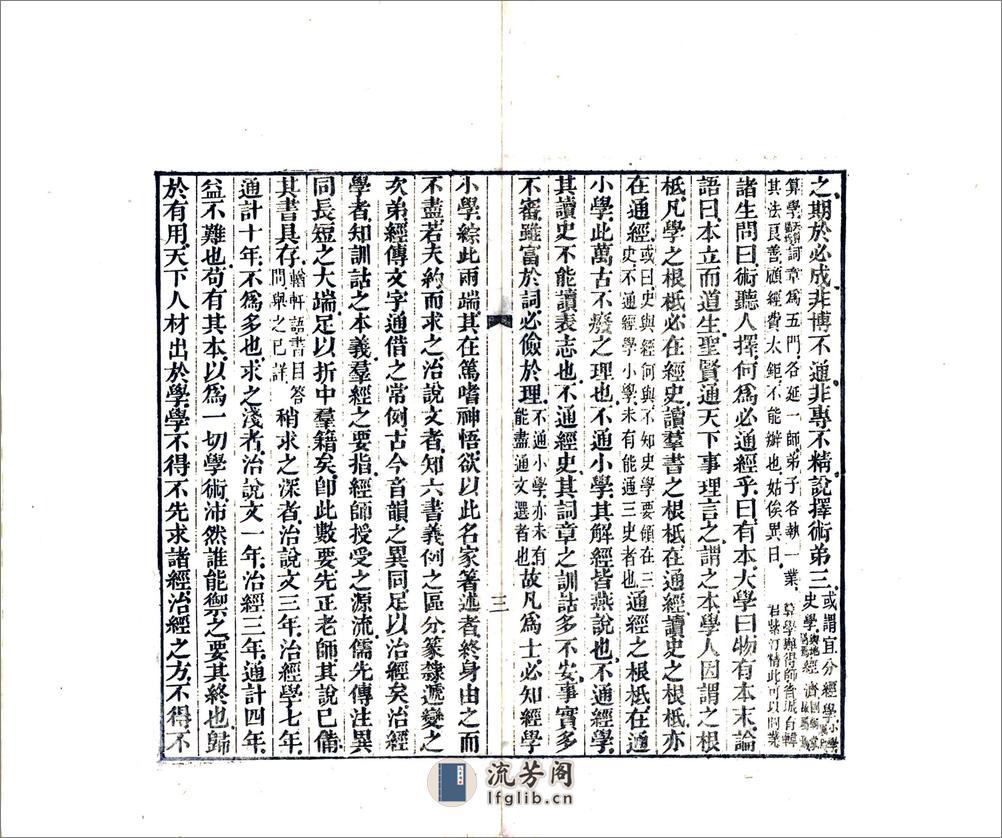 之期於必成非博不通非專不精說擇術第三或謂宜分經學小學
史學經濟
算學詞章爲五門各延一師弟子各執一業
其法良善顧經費太鉅不能辦也姑俟異日
諸生問曰術聽人擇何爲必通經乎曰有本大學曰物有本末論
語曰本立而道生聖賢通天下事理言之謂之本學人因謂之根
柢凡學之根柢必在經史讀羣書之根柢在通經讀史之根柢亦
在通經或曰史與經何與不知史學要領在三
史不通經學小學未有能通三史者也通經之根柢在通
小學此萬古不廢之理也不通小學其解經皆燕說也不通經學
其讀史不能讀表志也不通經史其詞章之訓詁多不安事實多
不審雖富於詞必儉於理不通小學亦未有
能盡通文選者也故凡爲士必知經學
三
小學綜此兩端其在篤嗜神悟欲以此名家箸述者終身由之而
不盡若夫約而求之治說文者知六書義例之區分篆隸遞變之
次弟經傳文字通借之常例古今音韻之異同足以治經矣治經
學者知訓詁之本義羣經之要指經師授受之源流儒先傳注異
同長短之大端足以折中羣籍矣卽此數要先正老師其說已備
其書具存輶軒語書目答
問舉之已詳稍求之深者治說文三年治經學七年
通計十年不爲多也求之淺者治說文一年治經三年通計四年
益不難也苟有其本以爲一切學術沛然誰能禦之要其終也歸
於有用天下人材出於學學不得不先求諸經治經之方不得不
流芳阁
lfglib.cn